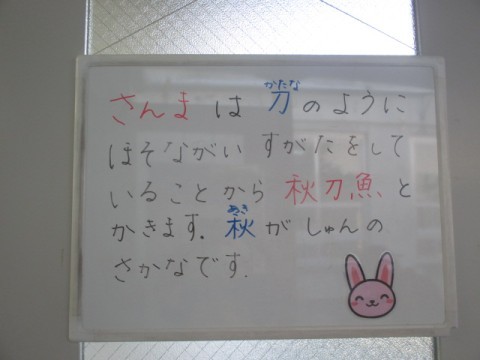 さんまは刀のように
かたな
ほそながいすがたをして
いることから秋刀魚と
かきます.秋がしゅんの
あき
さかなです.